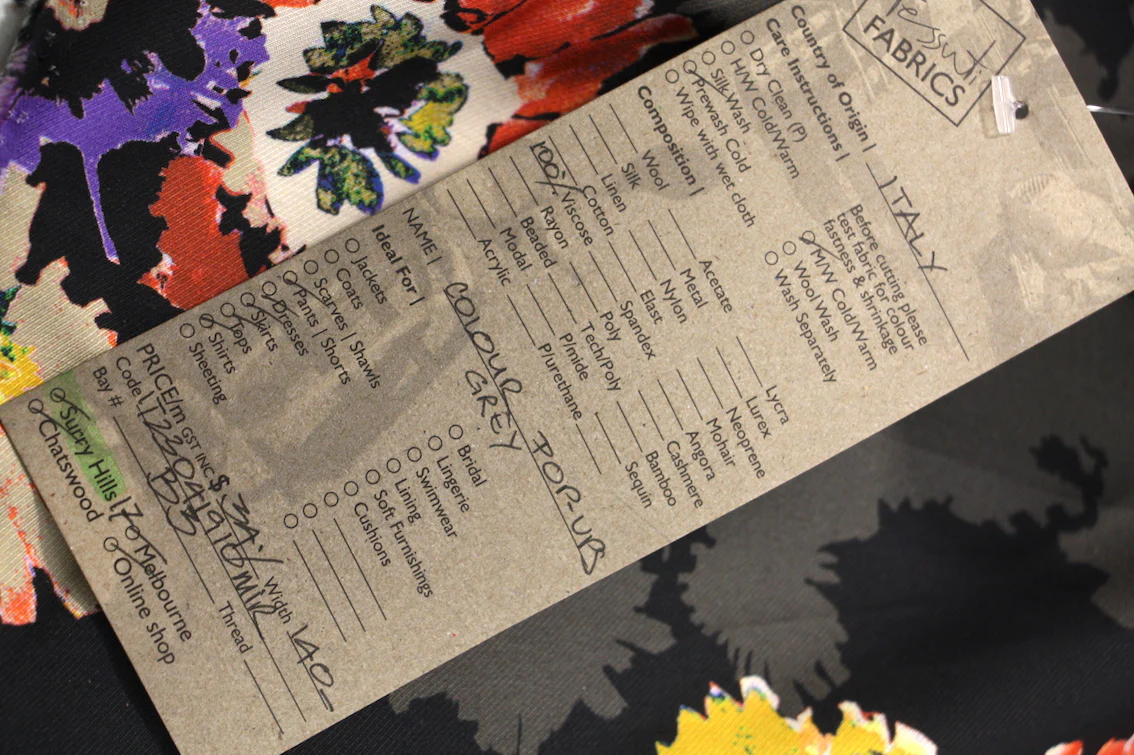 Tessuti
FABRICS
Country of Origin | ITALY
Care Instructions |
Dry Clean (P)
H/W Cold/Warm
Silk Wash
Prewash Cold
Wipe with wet cloth
Before cutting please
test fabric for colour
fastness & shrinkage
M/W Cold/Warm
Wool Wash
Wash Separately
Composition |
Wool
Silk
Linen
Cotton
100% Viscose
Rayon
Beaded
Modal
Acrylic
Acetate
Metal
Nylon
Elast
Spandex
Poly
Tech/Poly
P/mide
P/urethane
Lycra
Lurex
Neoprene
Mohair
Angora
Cashmere
Bamboo
Sequin
NAME | COLOUR POP-UP
GREY
Ideal For |
Jackets
Coats
Scarves | Shawls
Pants | Shorts
Dresses
Skirts
Tops
Shirts
Sheeting
Bridal
Lingerie
Swimwear
Lining
Soft Furnishings
Cushions
PRICE/m GST INC $ Width 140-
Code |
Bay # B3 Thread
Surry Hills Melbourne
Chatswood Online shop